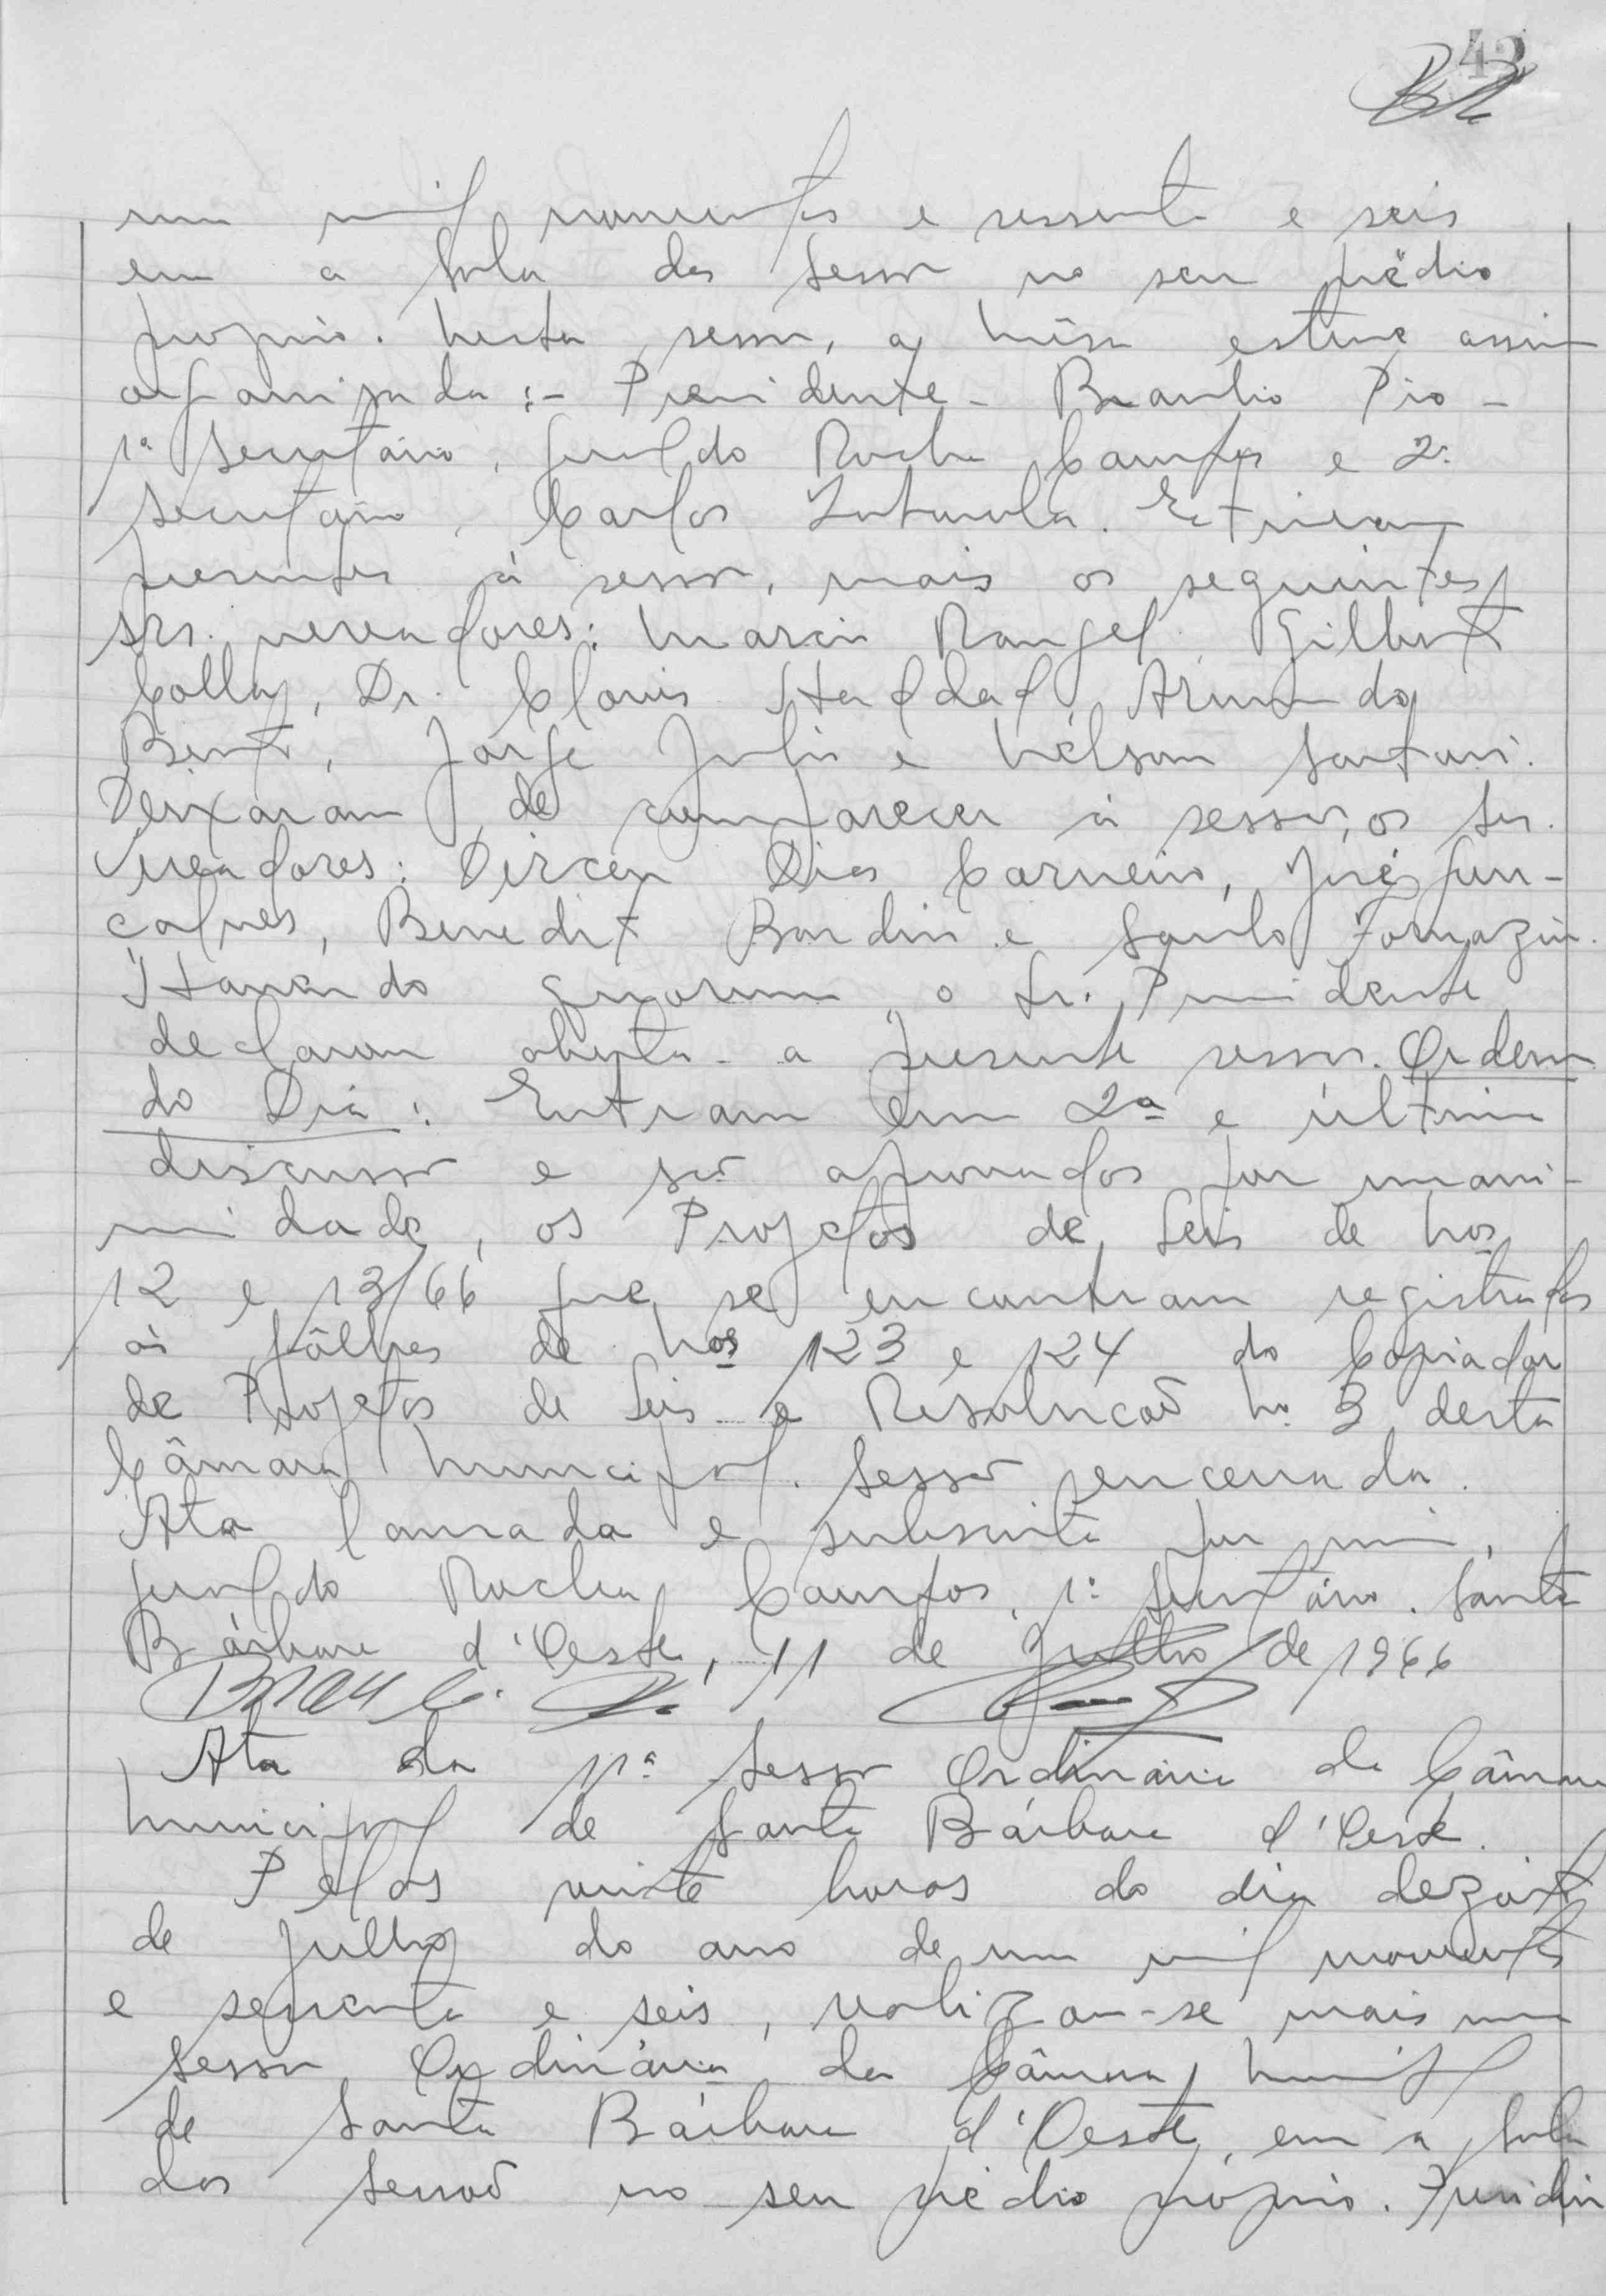 42
um mil novecentos e sessenta e seis
em a Sala das Sessões no seu prédio
próprio. Nesta sessão, a Mêsa esteve assim
organisada :- Presidente - Braulio Pio -
1º Secretário, Geraldo Rocha Campos e 2º
Secretário, Carlos Estiveram
presentes à sessão, mais os seguintes
srs. vereadores: Marcio Rangel, Gilberto
Colla, Dr. Clovis Haddad, Armando
Bento, Jorge Julio e Nélson Sartori.
Deixaram de comparecer à sessão, os Srs.
Vereadores: Dirceu Dias Carneiro, José Gon-
çalves, Benedito Bordin e Santo Tomazin.
Havendo quorum o Sr. Presidente
declarou aberta a presente sessão. Ordem
do Dia: Entram em 2ª e última
discussão e são aprovados por unani-
midade, os Projetos de Leis de Nos
12 e 13/66 que se encontram registrados
às fôlhas de Nos 123 e 124 do Copiador
de Projetos de Leis e Resolução No. 3 desta
Câmara Municipal. Sessão encerrada.
Ata lavrada e subscrita por mim,
Geraldo Rocha Campos, 1º Secretário. Santa
Bárbara d'Oeste, 11 de Julho de 1966
Ata da 11ª Sessão Ordinária da Câmara
Municipal de Santa Bárbara d'Oeste.
Pelas vinte horas do dia dezoito
de Julho do ano de um mil novecentos
e sessenta e seis, realizou-se mais uma
sessão Ordinária da Câmara Municipal
de Santa Bárbara d'Oeste, em a Sala
das Sessoẽs no seu prédio próprio. Presidiu